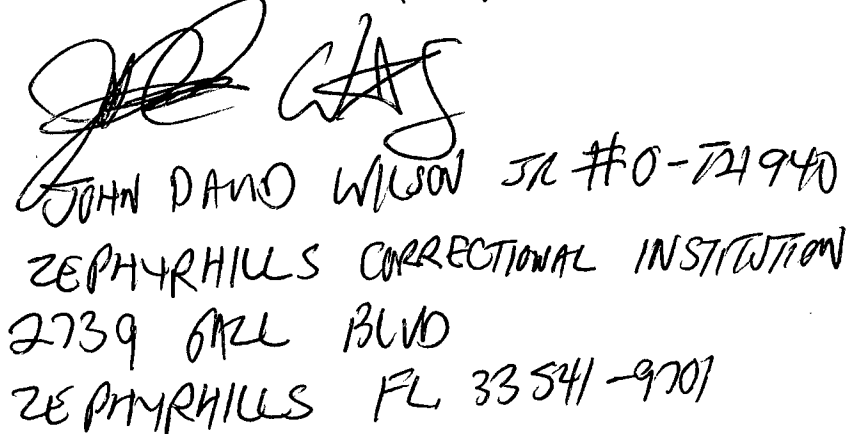 JOHN DAVID WILSON JR #0-T21940
ZEPHYRHILLS CORRECTIONAL INSTITUTION
2739 GALL BLVD
ZEPHYRHILLS FL 33541-9701